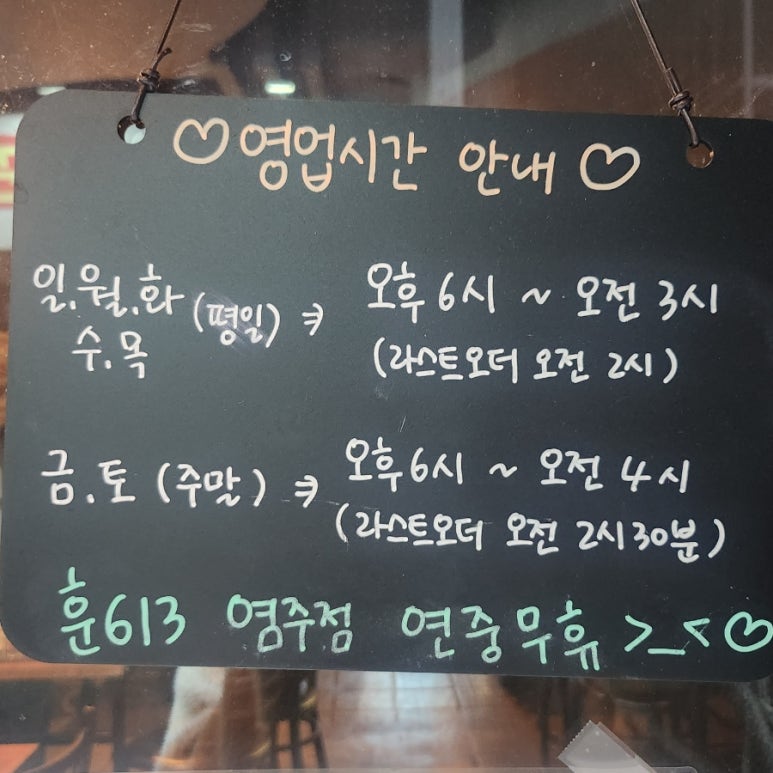 ♡영업시간 안내♡
일.월.화
수.목
(평일) → 오후 6시 ~ 오전 3시
(라스트오더 오전 2시)
금.토 (주말) → 오후6시 ~ 오전 4시
(라스트오더 오전 2시30분)
훈613 영주점 연중무휴 >_<♡